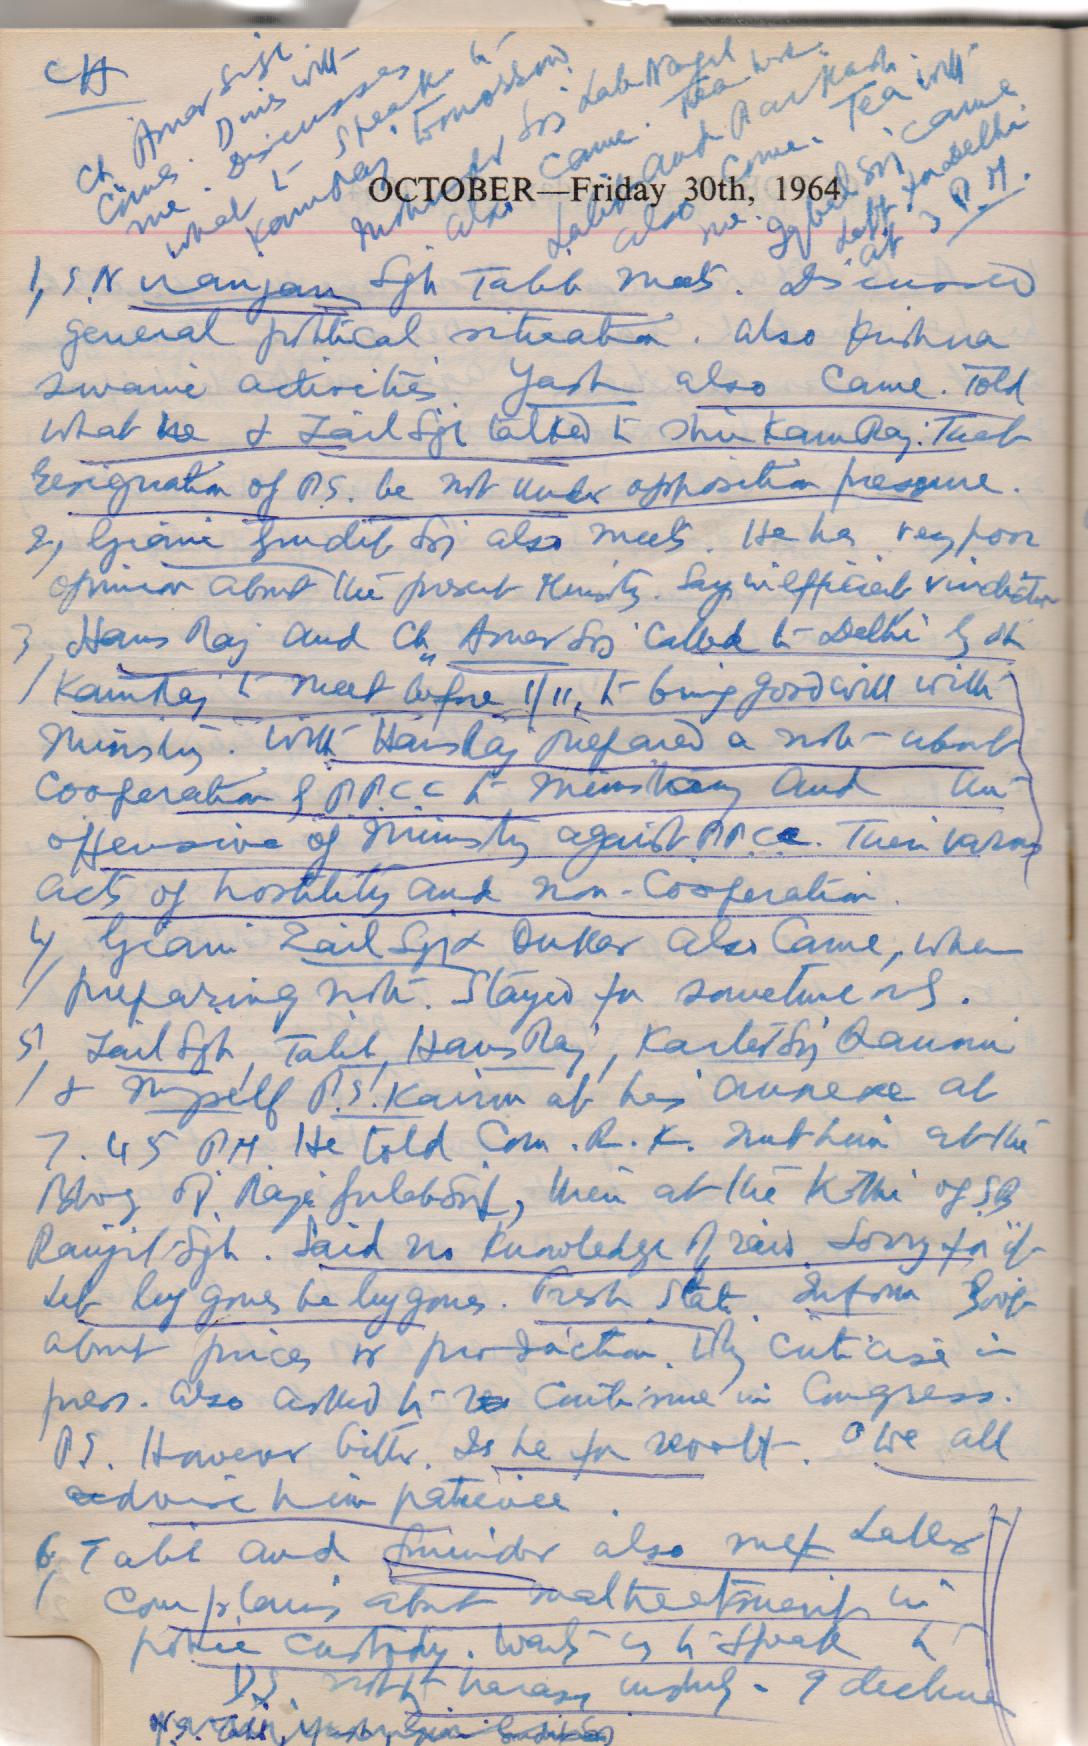 CH
Ch Amar Singh
Comes. Dines with
me. Discusses
what to speak to
Kamraj tomorrow.
Mohinder, Sri Labh Nagal
also came. Tea
and
also come. Tea with
me. Iqbal Sij came
Left for Delhi
at 3 P.M.
OCTOBER—Friday 30th, 1964
1, S. Niranjan Sgh Talib meets. Discussed
general political situation. Also Krishna
Swami activities. Yash also came. Told
what he & Zail Sgh talked to Shri KamRaj: That
resignation of P.S. be not under opposition pressure.
2, Giani Gurdit Sij also meets. He has very poor
opinion about the present Ministry. Says inefficient & vindictive
3, Hans Raj and Ch. Amar Sij called to Delhi by Sh
KamRaj to meet before 1/11, to bring goodwill with
Ministry. With HansRaj prepared a note about
Cooperation of P.P.C.C to Ministry and an
offensive of Ministry against P.P.C.C. Their various
acts of hostility and non-Cooperation.
4, Giani Zail Sgh & Onkar also came, when
preparing note. Stayed for sometime only.
5, Zail Sgh, Talib, Hans Raj, Kartar Sij
& Myself P.S. Kairon at his annexe at
7.45 PM He told Com. R. K. at the
of Raja Gulab Sij, then at the Kothi of SB
Ranjit Sgh. Said no knowledge of raid Sorry for it
Let bygones be bygones. Fresh Start. Inform Govt
about prices or production. Why criticise in
press. Also asked to continue in Congress.
P.S. However bitter. Is he for revolt. We all
advise him patience.
6, Talib and also met Later
Complains about maltreatment in
police custody. Wants us to speak to
not to harass unduly. I decline
N.S. Talib, Yash, Giani Gurdit Sij